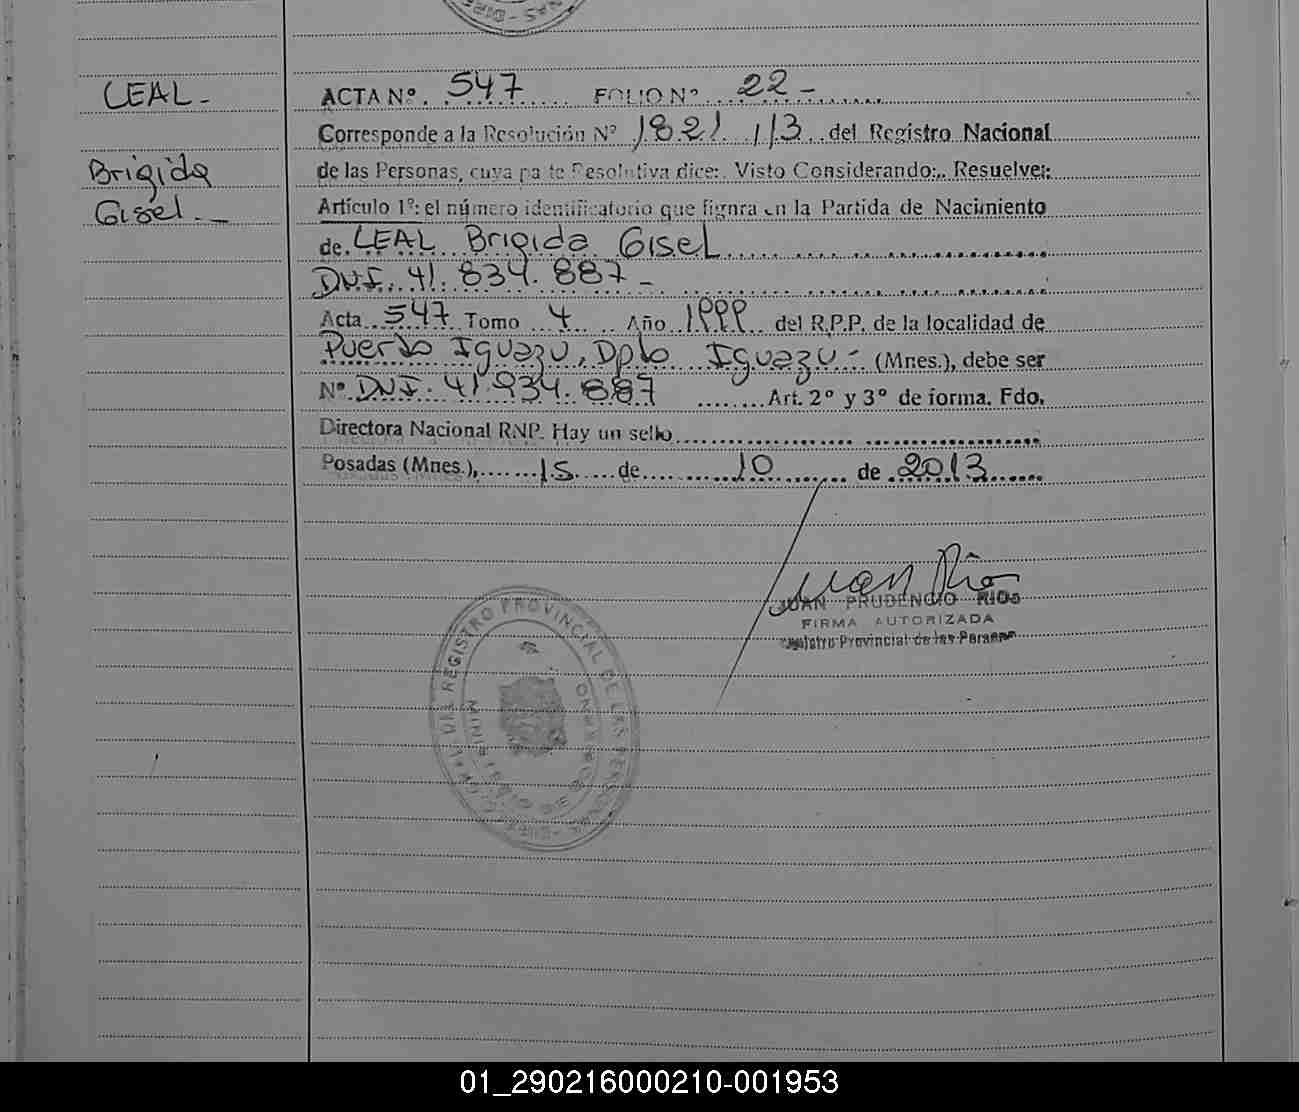 NAS - DIRE
LEAL -
ACTA Nº. 547 FOLIO Nº 22 -
Corresponde a la Resolución Nº 1821 /13 del Registro Nacional
Brigida
de las Personas, cuya parte Resolutiva dice:. Visto Considerando:,. Resuelve:
Gisel. -
Artículo 1º: el número identificatorio que figura en la Partida de Nacimiento
de. LEAL Brigida Gisel
D.N.I. 41. 834. 887 -
Acta 547 Tomo 4 Año 1999 del R.P.P. de la localidad de
Puerto Iguazu, Dpto Iguazu - (Mnes.), debe ser
Nº DNI. 41 934. 887 Art. 2º y 3º de forma. Fdo.
Directora Nacional RNP. Hay un sello
Posadas (Mnes.), 15 de 10 de 2013
Juan Rios
JUAN PRUDENCIO RIOS
FIRMA AUTORIZADA
Registro Provincial de las Personas
REGISTRO PROVINCIAL DE LAS PERSONAS
MINISTERIO DE GOBIERNO
01_290216000210-001953